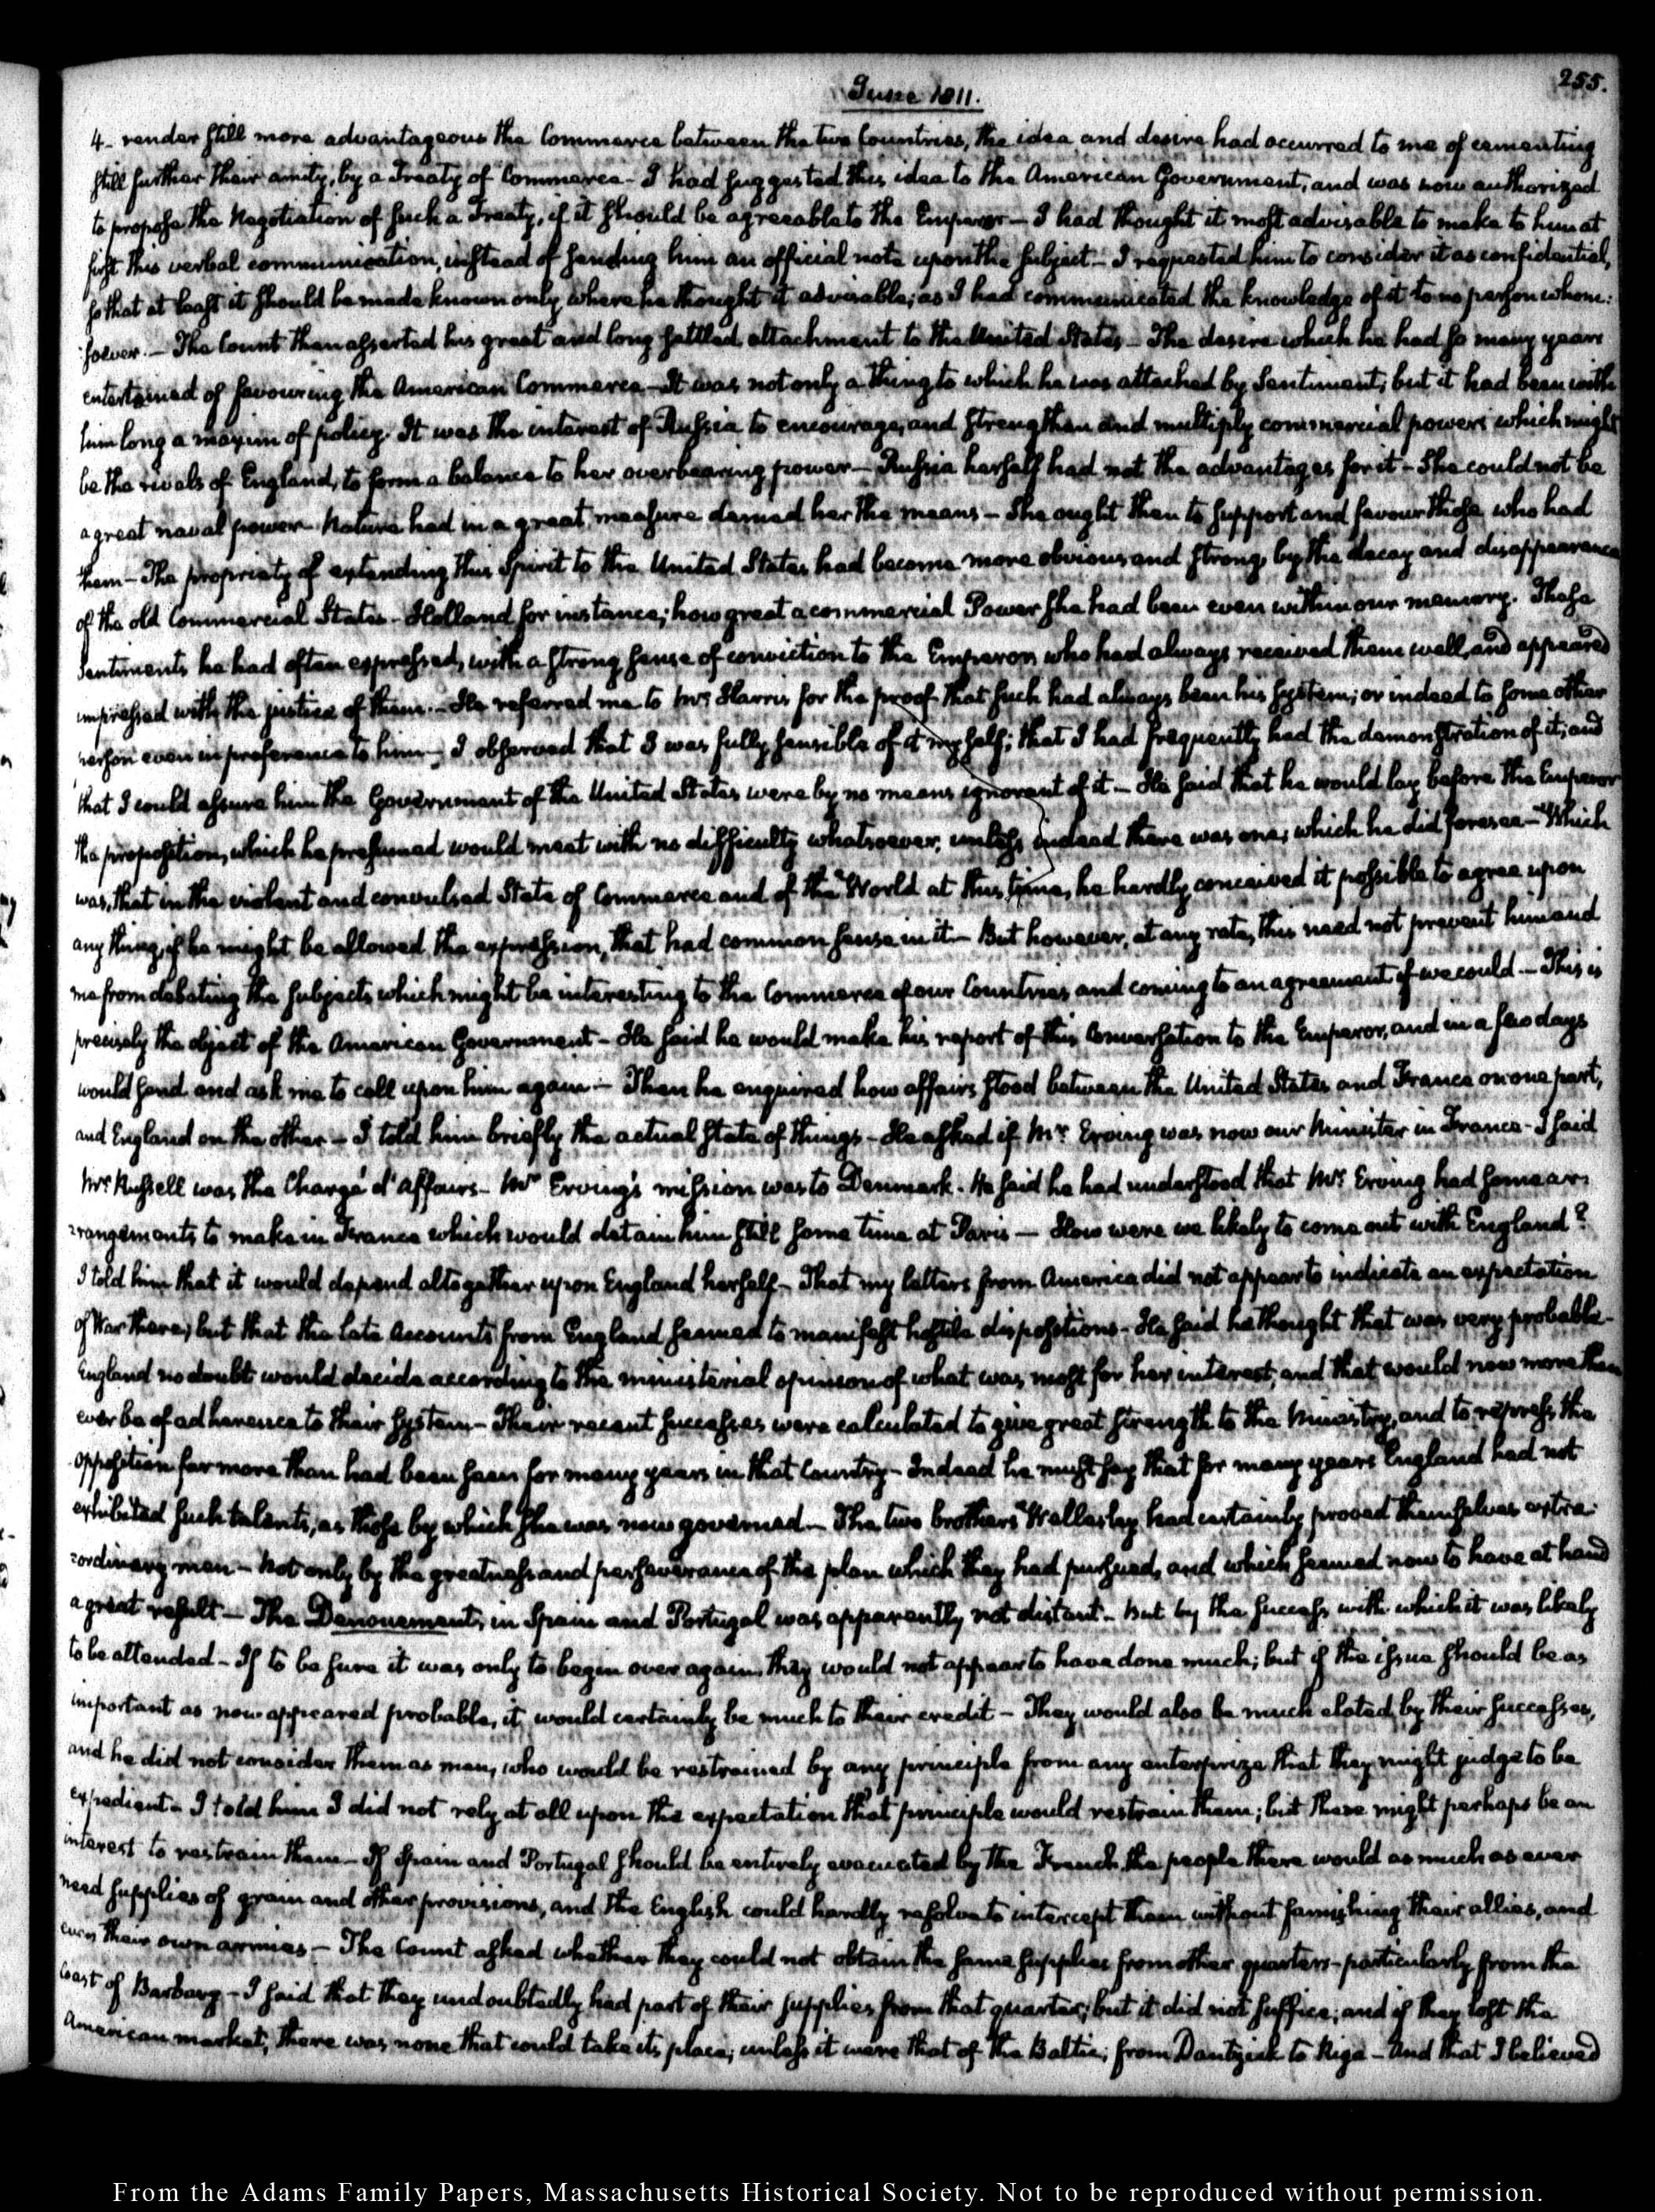 255.
June 1811.
4- render still more advantageous the Commerce between the two Countries, the idea and desire had occurred to me of cementing
still further their amity, by a Treaty of Commerce- I had suggested this idea to the American Government, and was now authorized
to propose the Negotiation of such a Treaty, if it should be agreeable to the Emperor — I had thought it most advisable to make to him at
first this verbal communication, instead of sending him an official note upon the subject — I requested him to consider it as confidential,
so that at least it should be made known only where he thought it advisable; as I had communicated the knowledge of it to no person whom:
:soever. — The Count then asserted his great and long settled attachment to the United States — The desire which he had so many years
entertained of favouring the American Commerce — It was not only a thing to which he was attached by Sentiment; but it had been with
him long a maxim of policy. It was the interest of Russia to encourage, and strengthen and multiply commercial powers which might
be the rivals of England, to form a balance to her overbearing power — Russia herself had not the advantages for it — She could not be
a great naval power — Nature had in a great measure denied her the means — She ought then to support and favour those who had
them — The propriety of extending this Spirit to the United States had become more obvious and strong, by the decay and disappearance
of the old Commercial States — Holland for instance; how great a commercial Power she had been even within our memory. These
Sentiments he had often expressed, with a strong sense of conviction to the Emperor, who had always received them well, and appeared
impressed with the justice of them. — He referred me to Mr Harris for the proof that such had always been his system; or indeed to some other
person even in preference to him — I observed that I was fully sensible of it myself; that I had frequently had the demonstration of it; and
that I could assure him the Government of the United States were by no means ignorant of it — He said that he would lay before the Emperor
the proposition, which he presumed would meet with no difficulty whatsoever, unless indeed there was one, which he did foresee — Which
was, that in the violent and convulsed State of Commerce and of the World at this time, he hardly conceived it possible to agree upon
any thing, if he might be allowed the expression, that had common sense in it — But however, at any rate, this need not prevent him and
me from debating the subjects which might be interesting to the Commerce of our Countries and coming to an agreement if we could — This is
precisely the object of the American Government — He said he would make his report of this Conversation to the Emperor, and in a few days
would send and ask me to call upon him again — Then he enquired how affairs stood between the United States and France on one part,
and England on the other — I told him briefly the actual state of things — He asked if Mr Erving was now our Minister in France — I said
Mr Russell was the Chargé d'Affaires — Mr Erving's mission was to Denmark. He said he had understood that Mr Erving had some ar:
:rangements to make in France which would detain him still some time at Paris — How were we likely to come out with England?
I told him that it would depend altogether upon England herself — That my letters from America did not appear to indicate an expectation
of War there; but that the late Accounts from England seemed to manifest hostile dispositions — He said he thought that was very probable —
England no doubt would decide according to the ministerial opinion of what was most for her interest, and that would now more than
ever be of adherence to their system — Their recent successes were calculated to give great strength to the Ministry, and to repress the
opposition far more than had been seen for many years in that Country — Indeed he must say that for many years England had not
exhibited such talents, as those by which she was now governed — The two brothers Wellesley had certainly proved themselves extra:
:ordinary men — Not only by the greatness and perseverance of the plan which they had pursued, and which seemed now to have at hand
a great result — The Denouement, in Spain and Portugal was apparently not distant — But by the success with which it was likely
to be attended — If to be sure it was only to begin over again, they would not appear to have done much; but if the issue should be as
important as now appeared probable, it would certainly be much to their credit — They would also be much elated by their successes,
and he did not consider them as men, who would be restrained by any principle from any enterprize that they might judge to be
expedient — I told him I did not rely at all upon the expectation that principle would restrain them; but there might perhaps be an
interest to restrain them — If Spain and Portugal should be entirely evacuated by the French, the people there would as much as ever
need supplies of grain and other provisions, and the English could hardly resolve to intercept them without famishing their allies, and
even their own armies — The Count asked whether they could not obtain the same supplies from other quarters — particularly from the
Coast of Barbary — I said that they undoubtedly had part of their supplies from that quarter; but it did not suffice; and if they lost the
American market, there was none that could take its place; unless it were that of the Baltic; from Dantzick to Riga — And that I believed
From the Adams Family Papers, Massachusetts Historical Society. Not to be reproduced without permission.